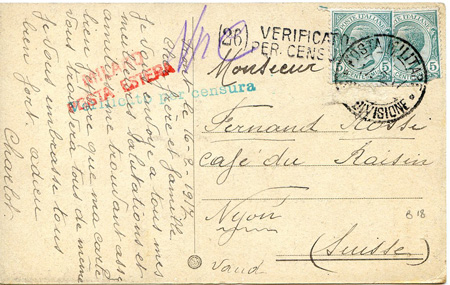 le 16-2-1917
Cher frère et famille
Je vous envoie à tous mes
meilleures salutations et
amitiés me trouvant assez
bien. J'espère que ma carte
vous trouvera tous de même
Je vous embrasse tous
bien fort adieu
Charlot
MILANO
POSTA ESTERA
Verificato per censura
(26) VERIFICATO
PER CENSURA
POSTE ITALIANE
5 5
POSTA MILITARE
DIVISIONE
Monsieur
Fernand Rossi
Café du Raisin
Nyon
(Suisse)
Vaud
B 18